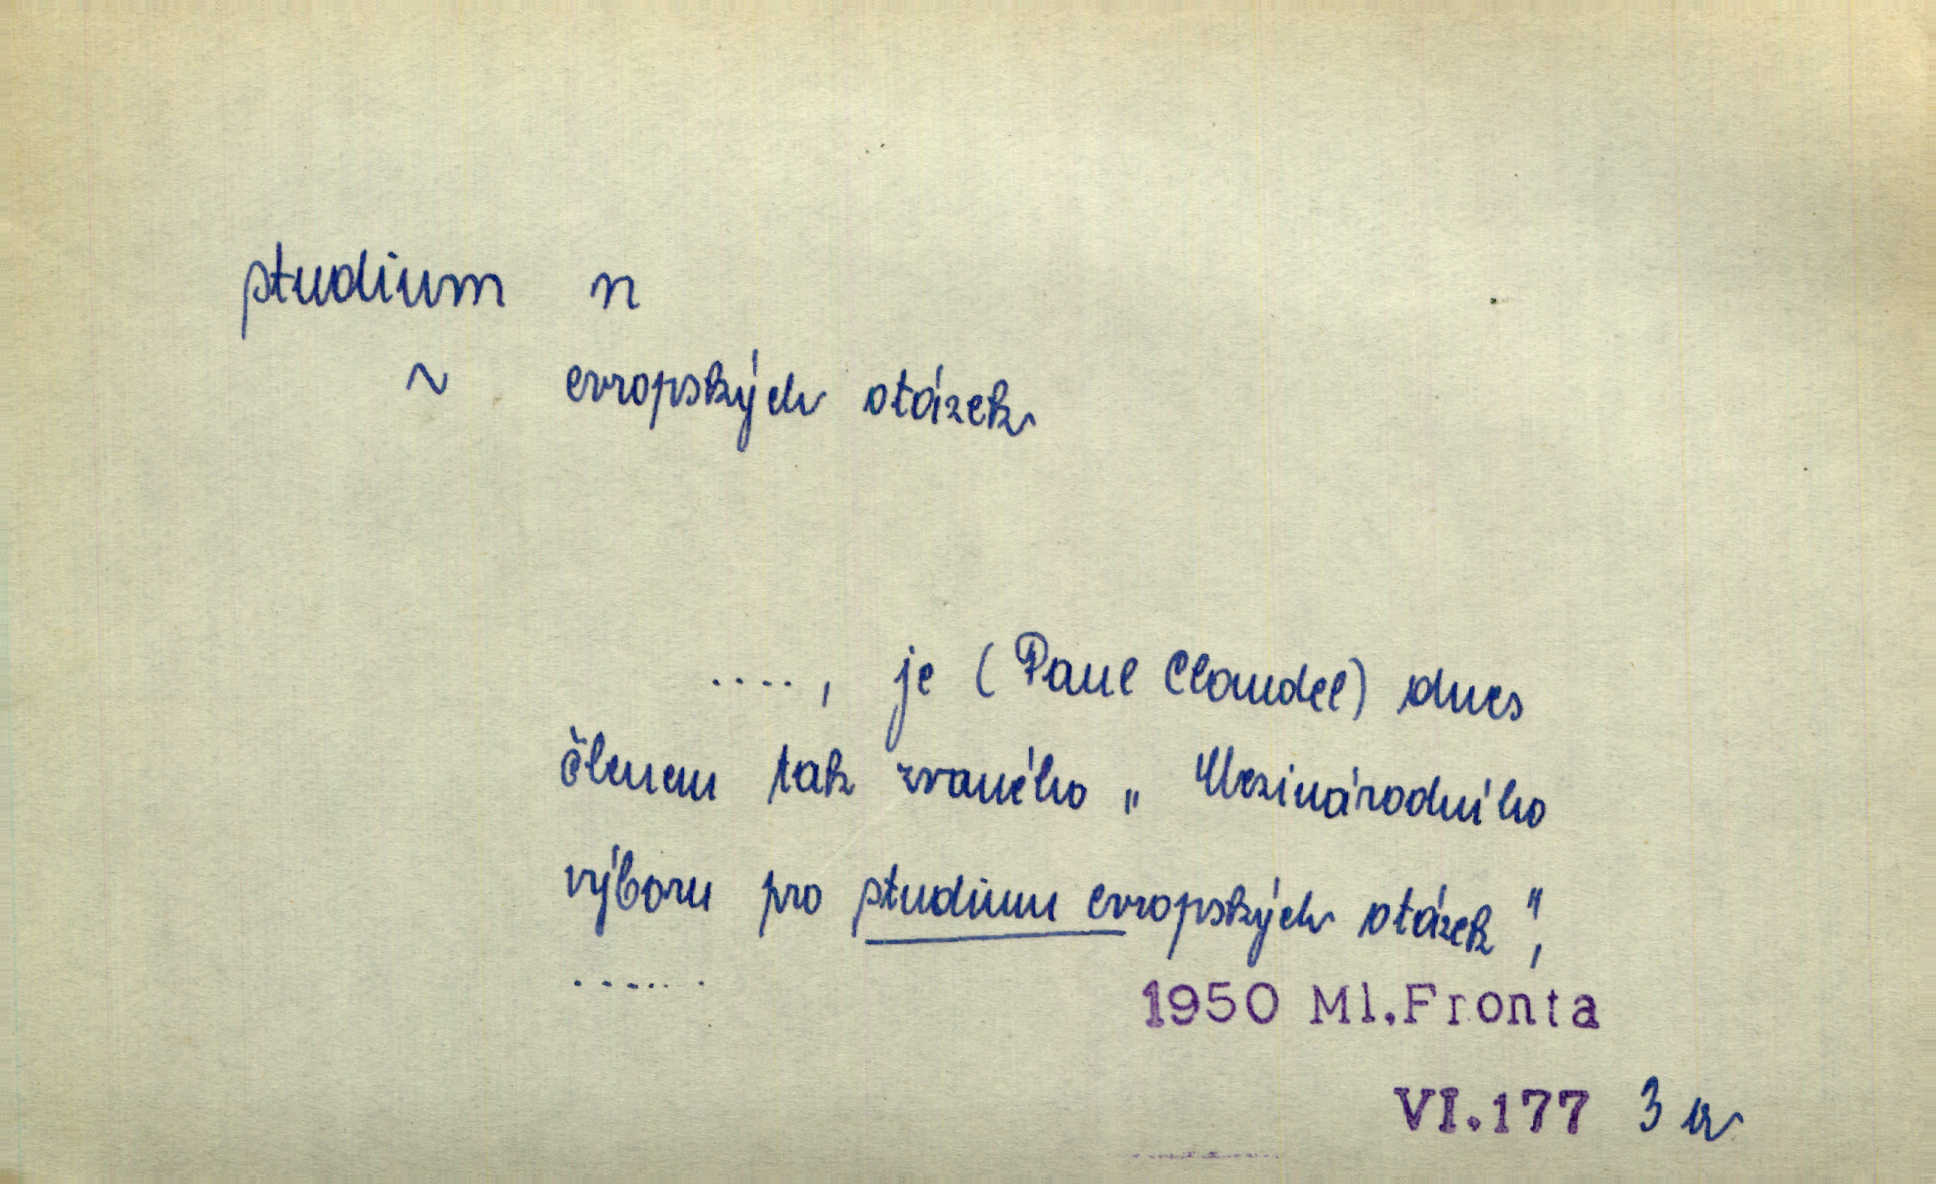 studium n
~ evropských otázek
...., je (Paul Claudel) dnes
členem tak zvaného „Mezinárodního
výboru pro studium evropských otázek",
......
1950 Ml.Fronta
VI.177 3